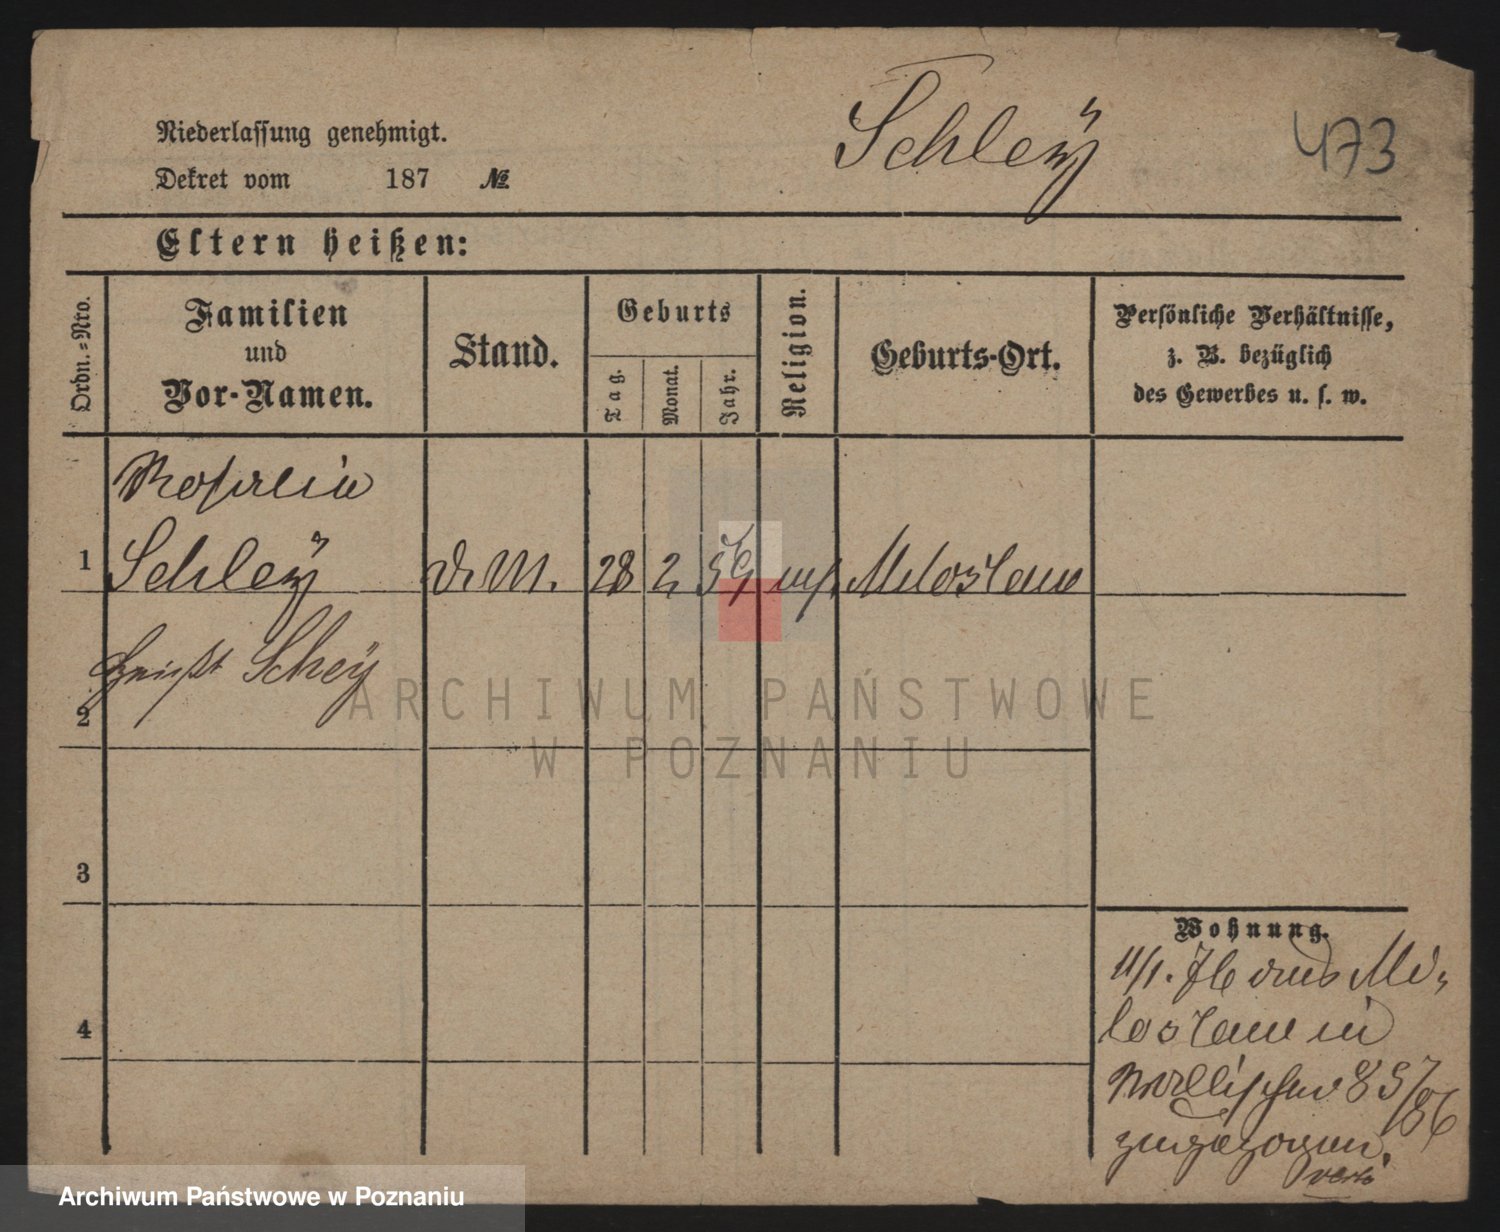 Schley
473
Niederlassung genehmigt.
Dekret vom 187 №
Eltern heißen:
Ordn.-Nro.
Familien
und
Vor-Namen.
Stand.
Geburts
Tag.
Monat.
Jahr.
Religion.
Geburts-Ort.
Persönliche Verhältnisse,
z. B. bezüglich
des Gewerbes u. s. w.
Rosalie
1 Schley d. M. 28 2 59 Miloslaw
heißt Schey
2
3
4
Wohnung.
11/1. 76 aus Mi-
loslaw in
Wallischei 85/86
zugezogen.
verte
ARCHIWUM PAŃSTWOWE
W POZNANIU
Archiwum Państwowe w Poznaniu